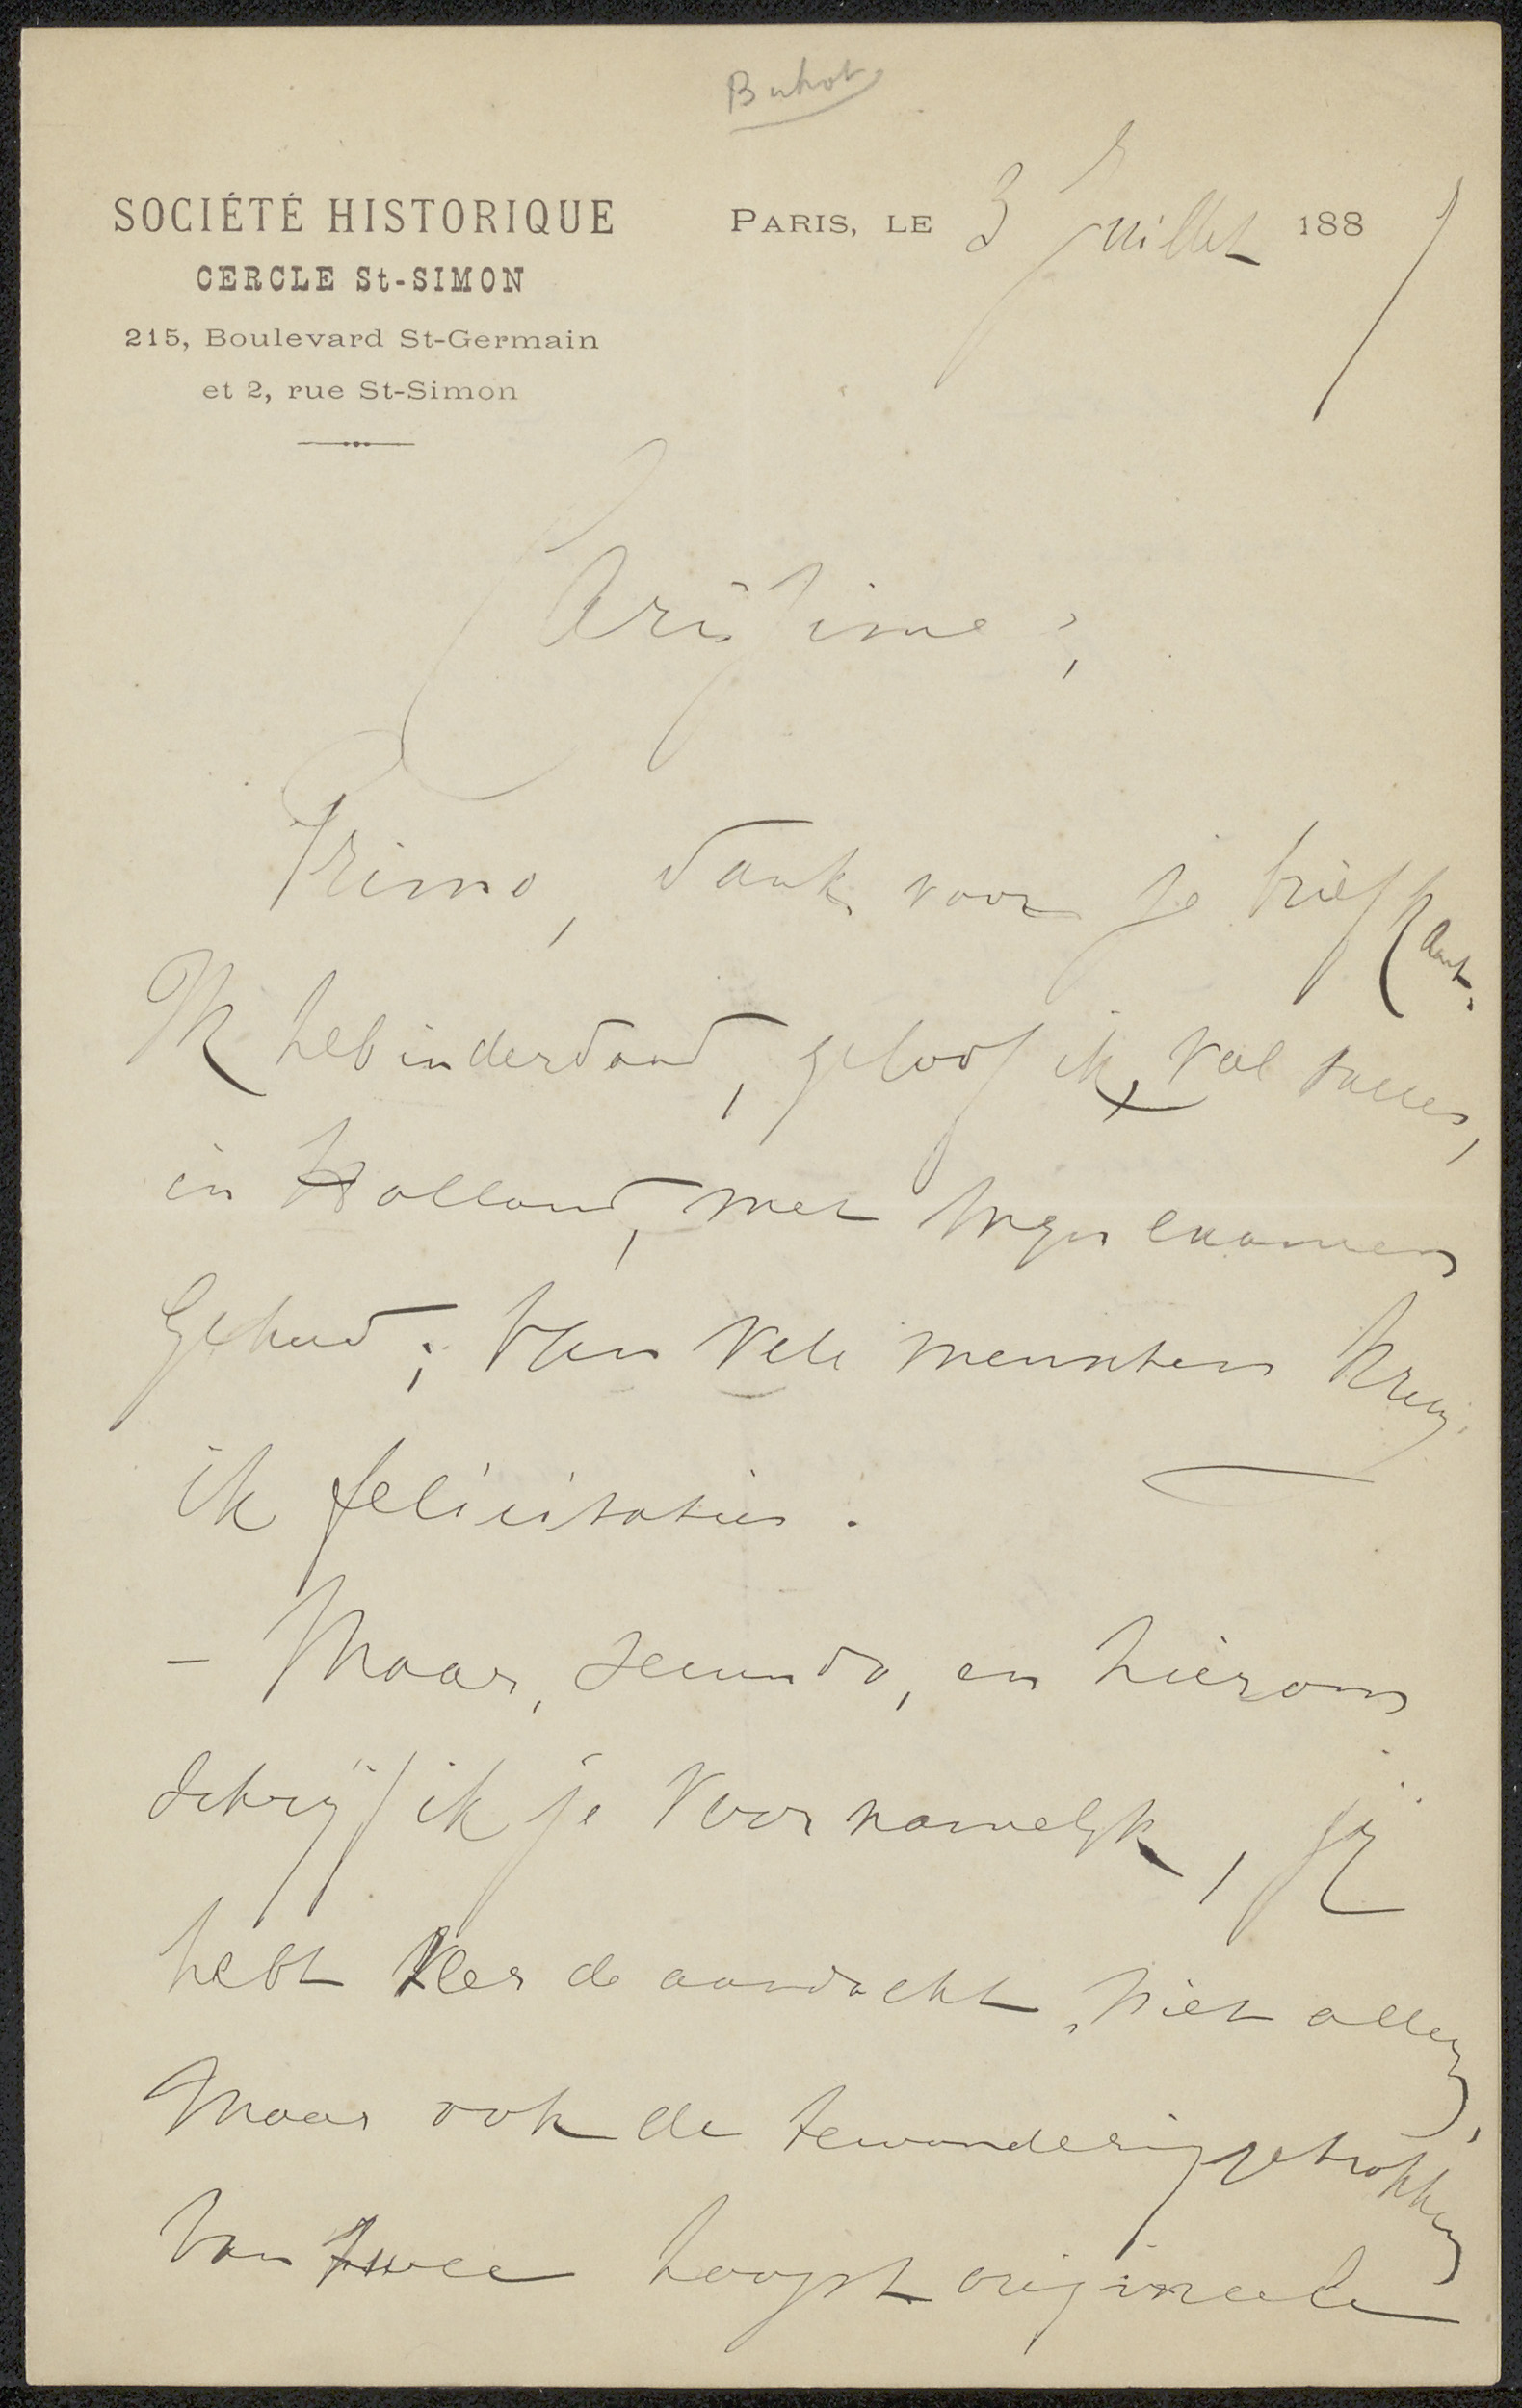 Buhot
SOCIÉTÉ HISTORIQUE
CERCLE St-SIMON
215, Boulevard St-Germain
et 2, rue St-Simon
PARIS, LE 3 Juillet 188
Primo, dank voor je briefkaart.
Ik heb inderdaad, geloof ik, veel succes,
in Holland, met mijn examen
gehad; Van vele menschen kreeg
ik felicitaties.
- Maar, secundo, en hierom
schrijf ik je voornamelijk, je
hebt zeer de aandacht, niet alleen,
maar ook de bewondering getrokken
van twee hoogst origineele